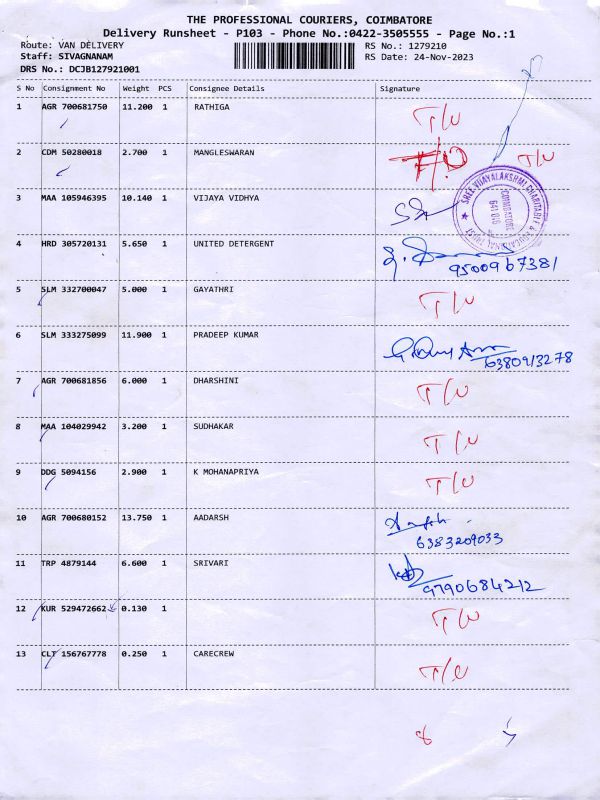 THE PROFESSIONAL COURIERS, COIMBATORE
Delivery Runsheet - P103 - Phone No.:0422-3505555 - Page No.:1
Route: VAN DELIVERY RS No.: 1279210
Staff: SIVAGNANAM RS Date: 24-Nov-2023
DRS No.: DCJB127921001
S No Consignment No Weight PCS Consignee Details Signature
1 AGR 700681750 11.200 1 RATHIGA T/U
2 CDM 50280018 2.700 1 MANGLESWARAN T/U
3 MAA 105946395 10.140 1 VIJAYA VIDHYA
SREE VIJAYALAKSHMI CHARITABLE & EDUCATIONAL TRUST
COIMBATORE
4 HRD 305720131 5.650 1 UNITED DETERGENT
9500967381
5 SLM 332700047 5.000 1 GAYATHRI T/U
6 SLM 333275099 11.900 1 PRADEEP KUMAR
6380913278
7 AGR 700681856 6.000 1 DHARSHINI T/U
8 MAA 104029942 3.200 1 SUDHAKAR T/U
9 DDG 5094156 2.900 1 K MOHANAPRIYA T/U
10 AGR 700680152 13.750 1 AADARSH
6383209033
11 TRP 4879144 6.600 1 SRIVARI
9790684212
12 KUR 529472662 0.130 1 T/U
13 CLT 156767778 0.250 1 CARECREW T/U
8 5